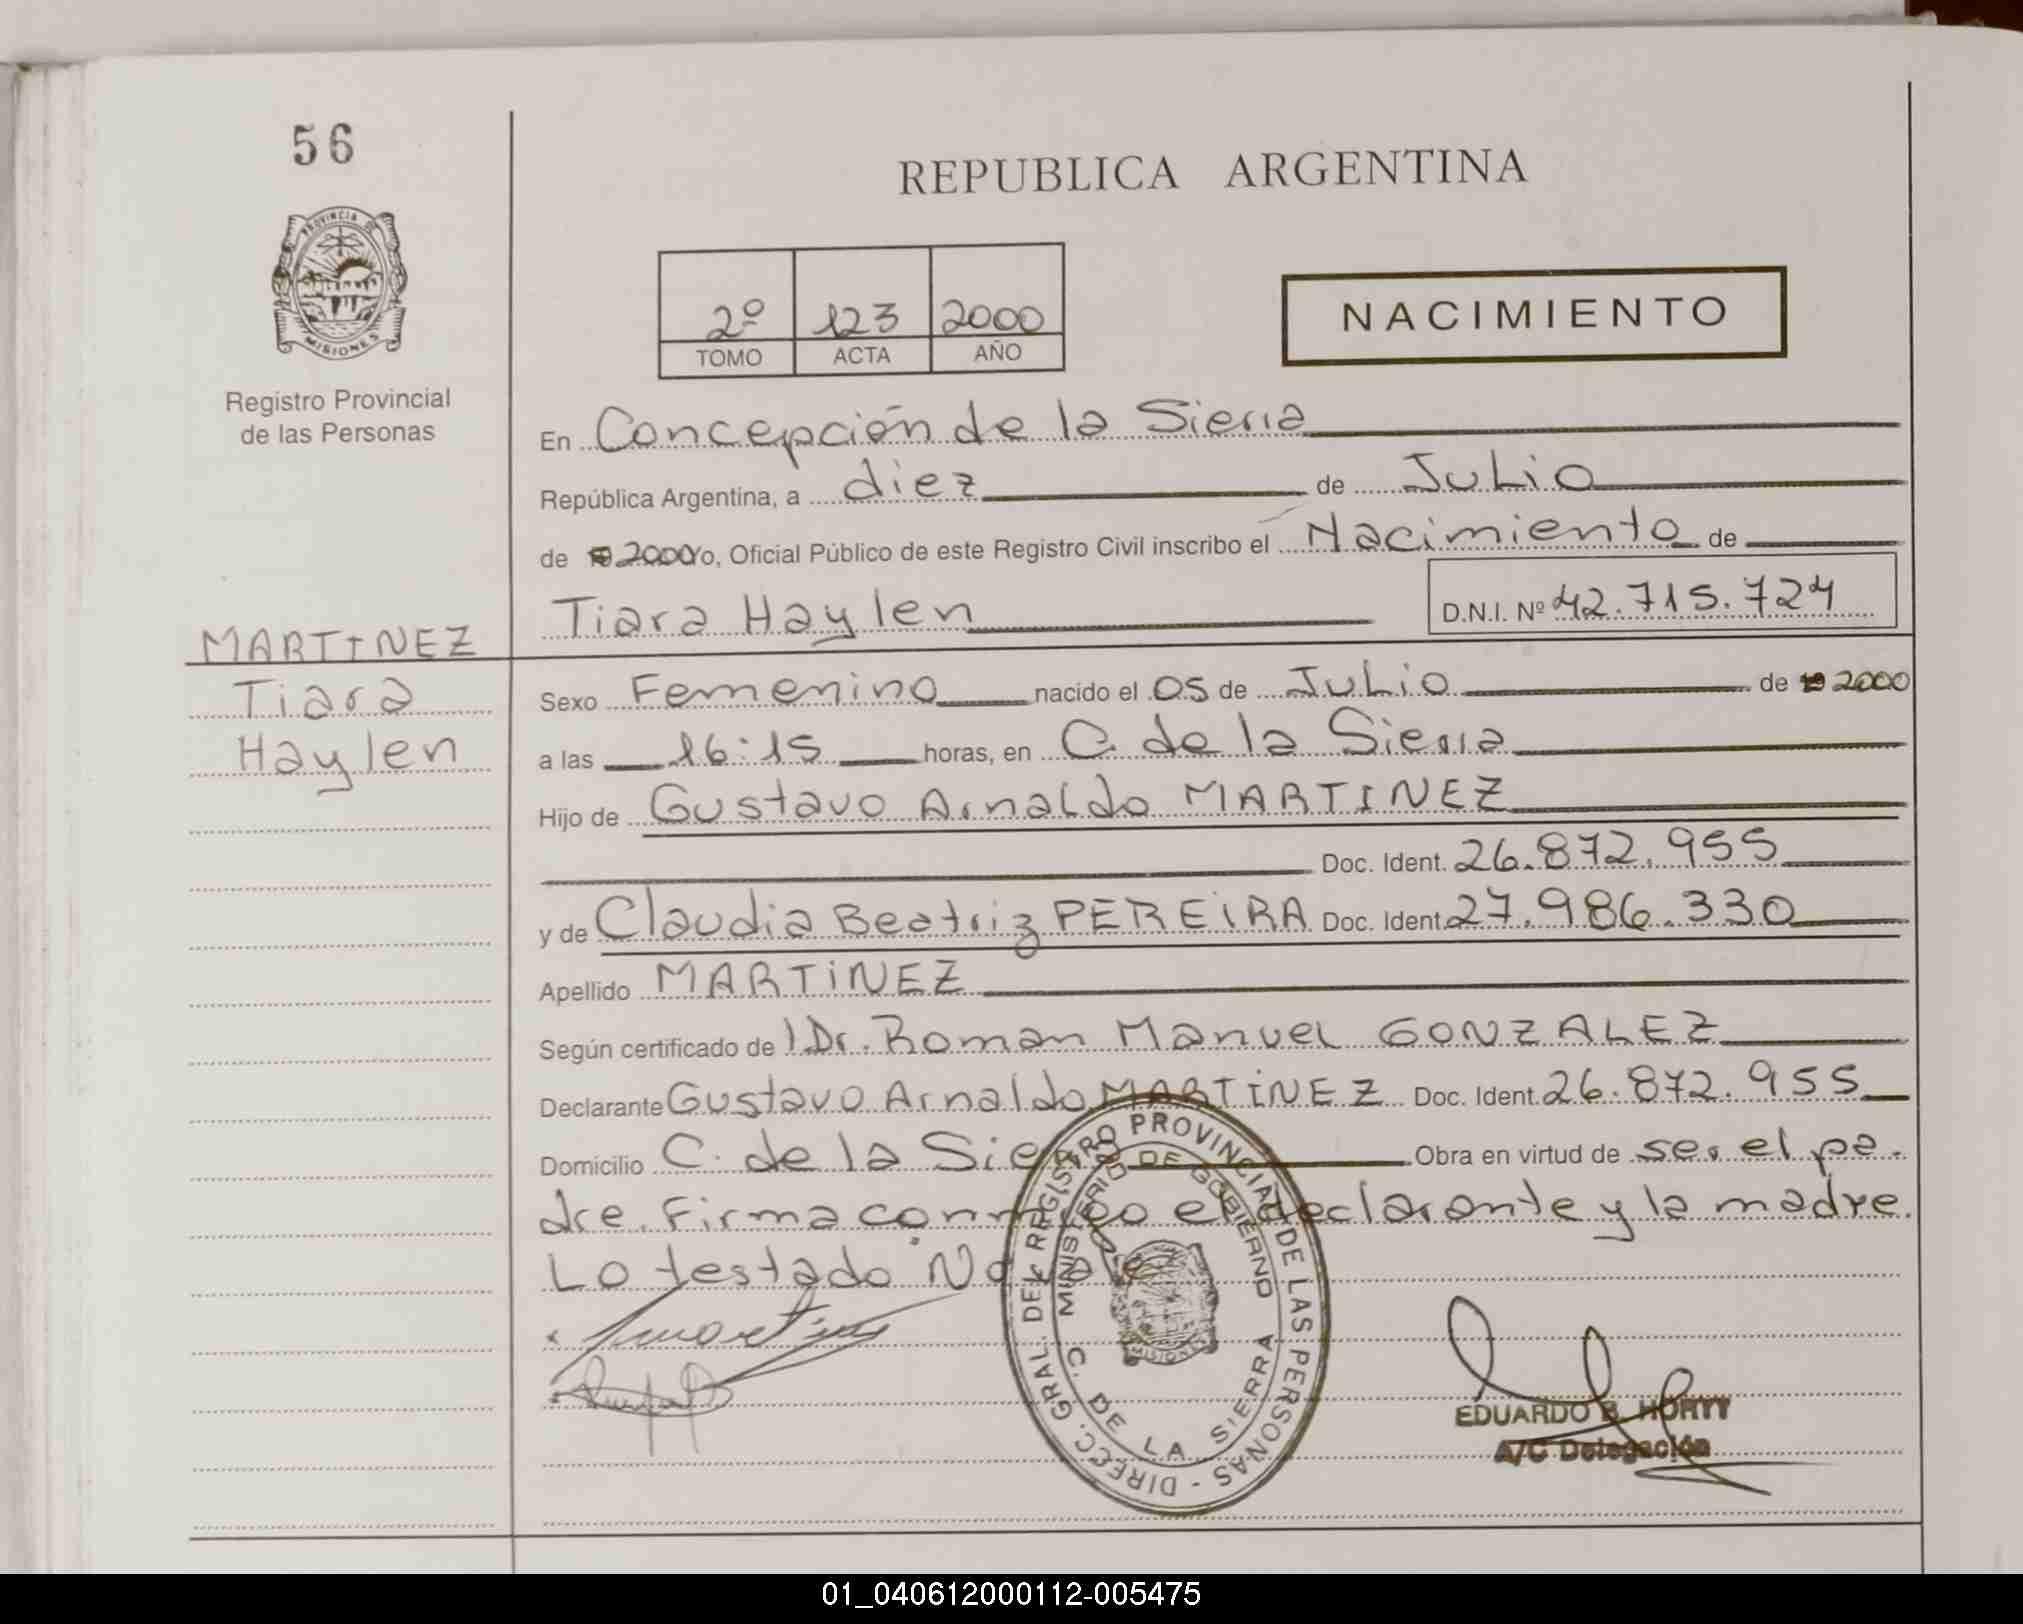 56
REPUBLICA ARGENTINA
PROVINCIA DE
MISIONES
Registro Provincial
de las Personas
2º 123 2000
TOMO ACTA AÑO
NACIMIENTO
En Concepción de la Sierra
República Argentina, a diez de Julio
de 19 2000 Yo, Oficial Público de este Registro Civil inscribo el Nacimiento de
Tiara Haylen D.N.I. Nº 42.715.724
MARTINEZ
Tiara
Haylen
Sexo Femenino nacido el 05 de Julio de 19 2000
a las 16:15 horas, en C. de la Sierra
Hijo de Gustavo Arnaldo MARTINEZ
Doc. Ident. 26.872.955
y de Claudia Beatriz PEREIRA Doc. Ident. 27.986.330
Apellido MARTINEZ
Según certificado de Dr. Roman Manuel GONZALEZ
Declarante Gustavo Arnaldo MARTINEZ Doc. Ident. 26.872.955
Domicilio C. de la Sierra Obra en virtud de ser el pa-
dre. Firma conmigo el declarante y la madre.
Lo testado No vale
DIRECC. GRAL. DEL REGISTRO PROVINCIAL DE LAS PERSONAS -
MINISTERIO DE GOBIERNO
C. DE LA SIERRA
MISIONES
EDUARDO B. HORTT
A/C Delegación
01_040612000112-005475